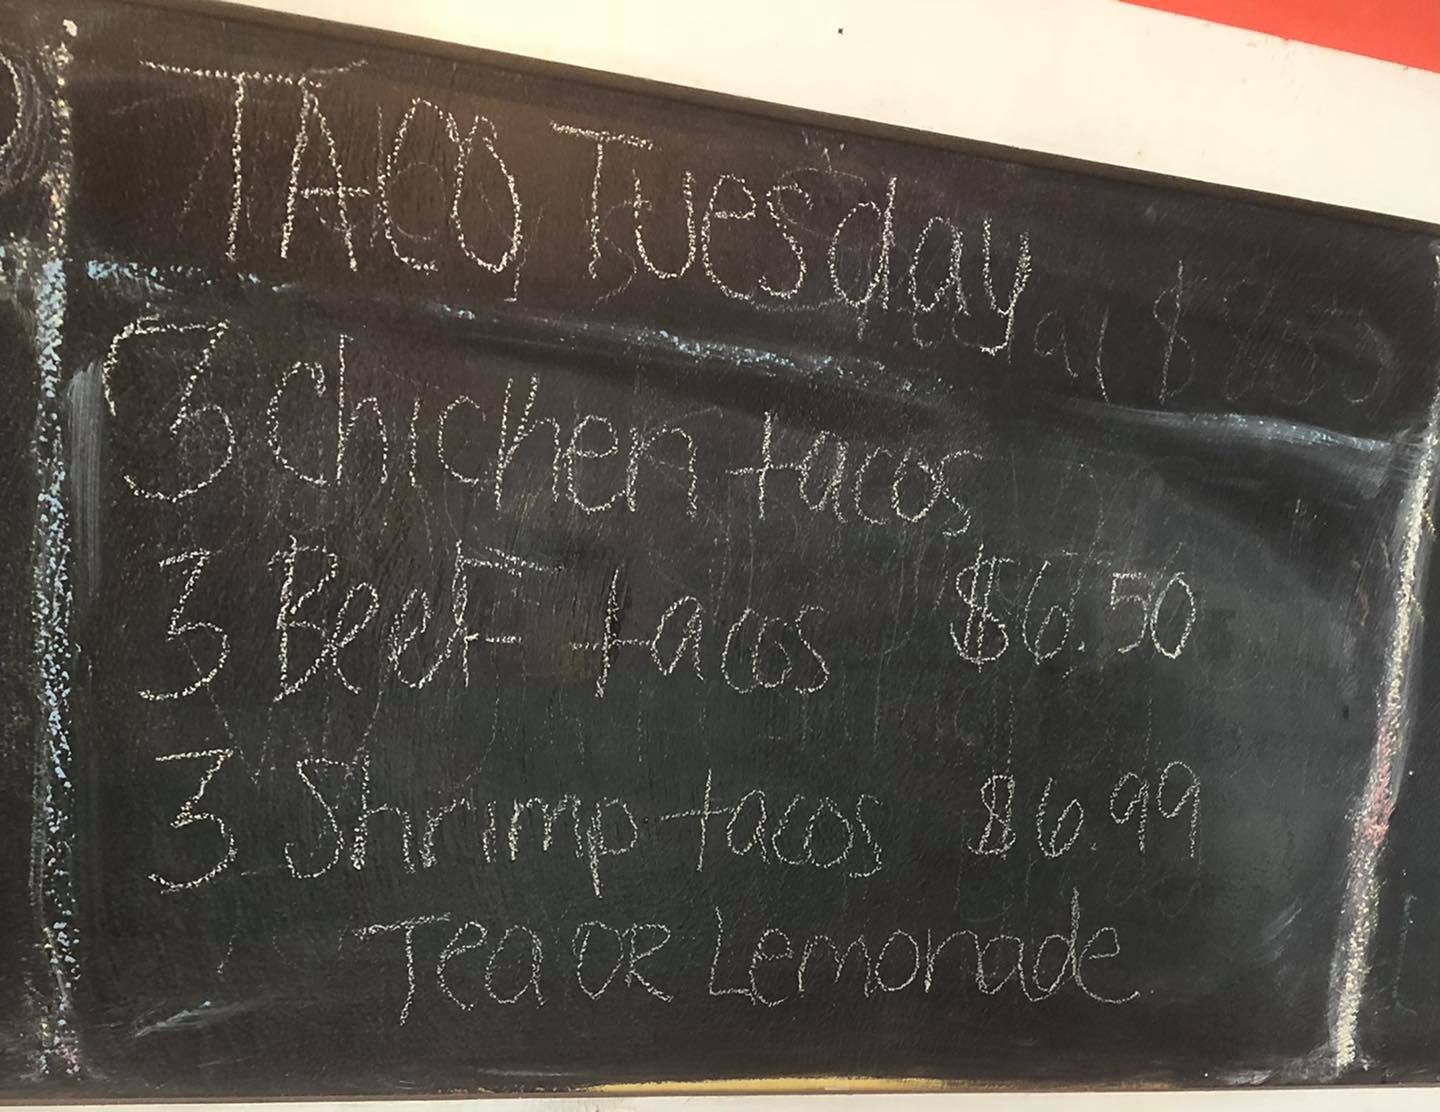 TACO Tuesday
3 chicken tacos
3 BeeF tacos $6.50
3 Shrimp tacos $6.99
Tea OR Lemonade